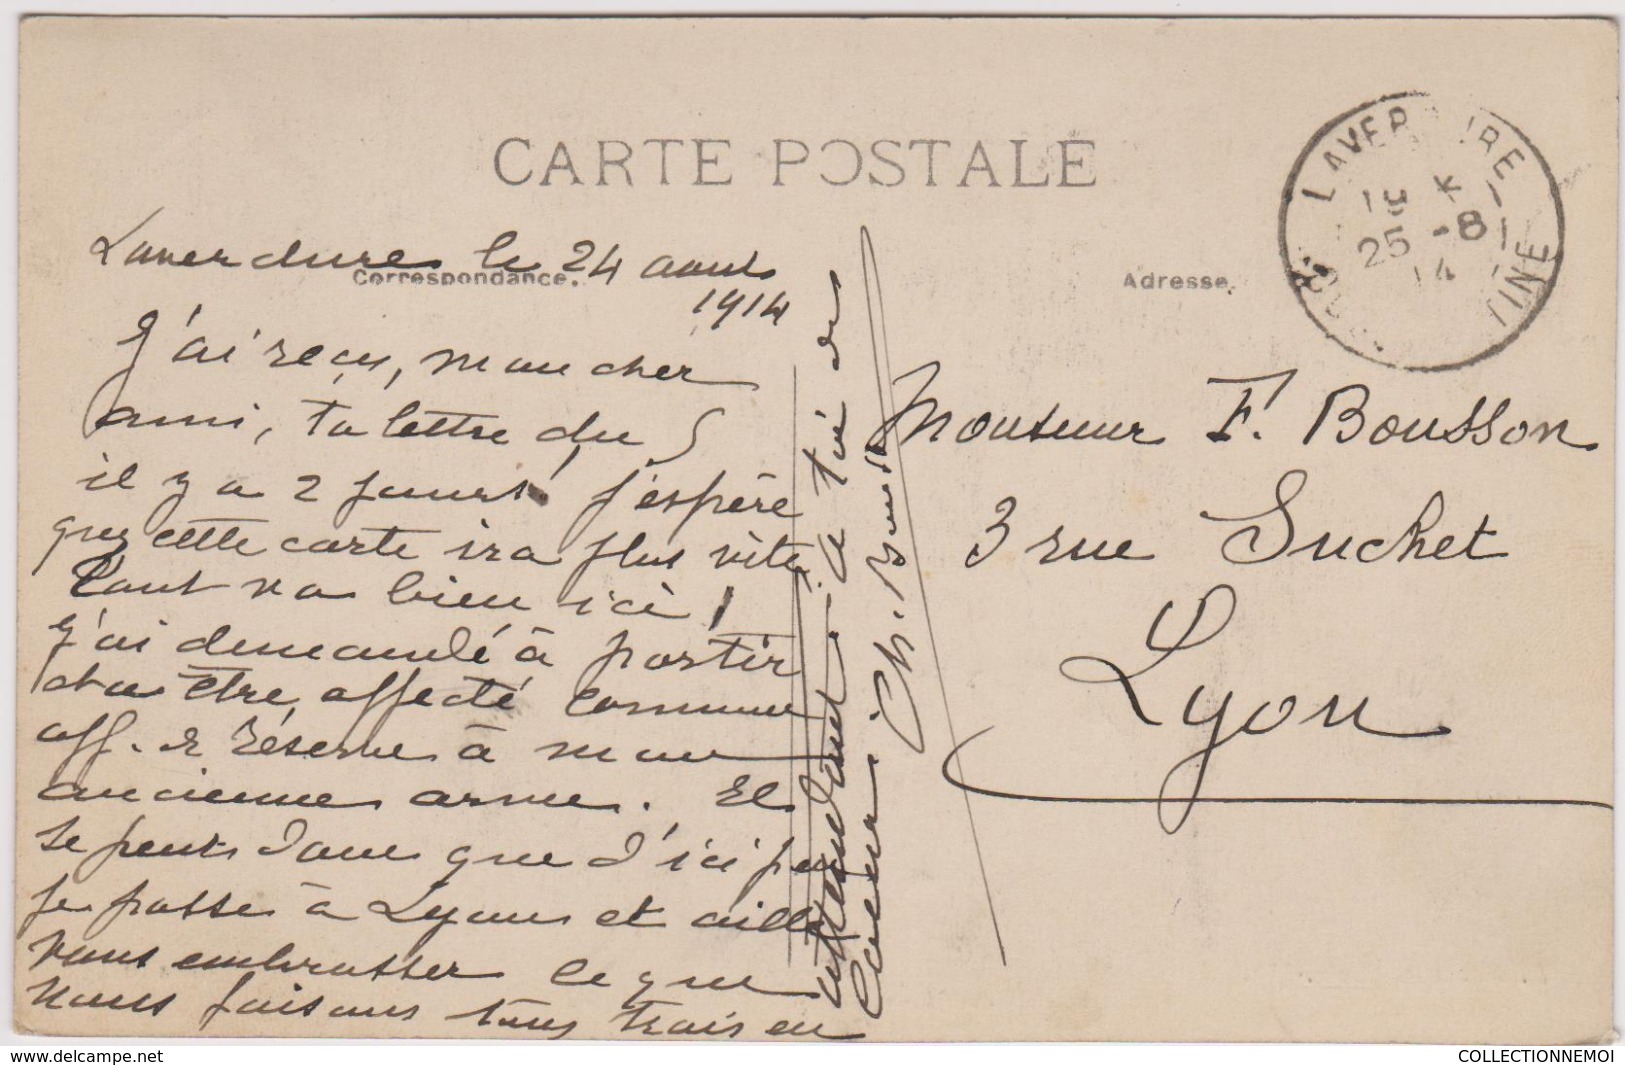 CARTE POSTALE
Correspondance.
Adresse.
LAVERDURE
19
25 -8
14
Laverdure le 24 aout
1914
J'ai reçu, mon cher
ami, ta lettre du 5
il y a 2 jours! j'espère
que cette carte ira plus vite
Tout va bien ici!
J'ai demandé à partir
et à être affecté comme
off. de réserve à mon
ancienne arme. Il
se peut donc que d'ici peu
je passe à Lyon et aille
vous embrasser ce que
nous faisons tous trois en
attendant. à toi de
coeur. Ch.
Monsieur F. Bousson
3 rue Suchet
Lyon
COLLECTIONNEMOI
https://www.delcampe.net